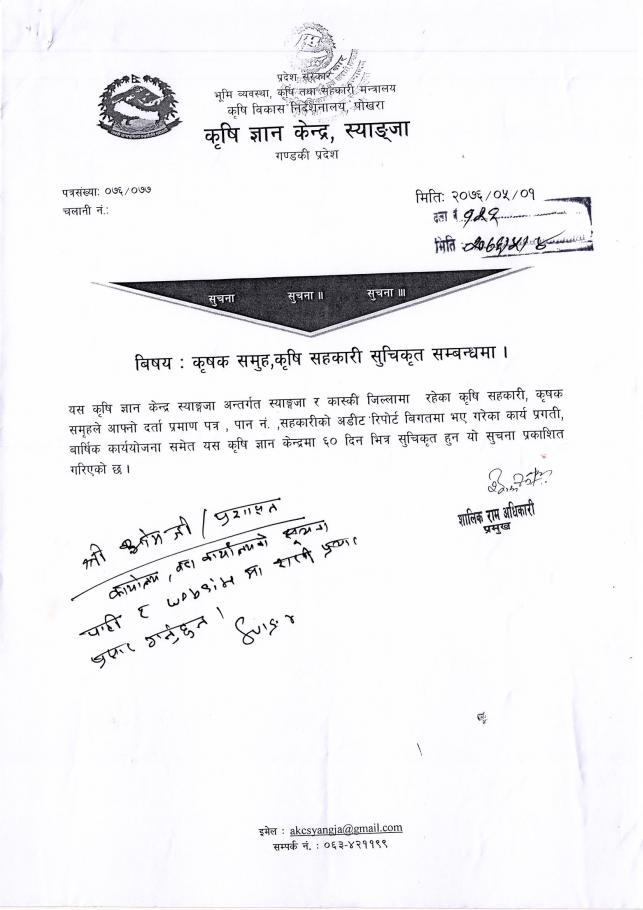 प्रदेश सरकार
भूमि व्यवस्था, कृषि तथा सहकारी मन्त्रालय
कृषि विकास निर्देशनालय, पोखरा
कृषि ज्ञान केन्द्र, स्याङ्जा
गण्डकी प्रदेश
पत्रसंख्या: ०७६/०७७
मिति: २०७६/०५/०१
चलानी नं.:
दर्ता नं १२२
मिति
सुचना सुचना ॥ सुचना ॥।
बिषय : कृषक समुह,कृषि सहकारी सुचिकृत सम्बन्धमा ।
यस कृषि ज्ञान केन्द्र स्याङ्जा अन्तर्गत स्याङ्जा र कास्की जिल्लामा रहेका कृषि सहकारी, कृषक
समूहले आफ्नो दर्ता प्रमाण पत्र , पान नं. ,सहकारीको अडीट रिपोर्ट बिगतमा भए गरेका कार्य प्रगती,
बार्षिक कार्ययोजना समेत यस कृषि ज्ञान केन्द्रमा ६० दिन भित्र सुचिकृत हुन यो सुचना प्रकाशित
गरिएको छ ।
शालिक राम अधिकारी
प्रमुख
श्री
कार्यालय , वडा कार्यालयको सूचना
पाटी र website मा
गर्नुहुन ।
इमेल : akcsyangja@gmail.com
सम्पर्क नं. : ०६३-४२११९९